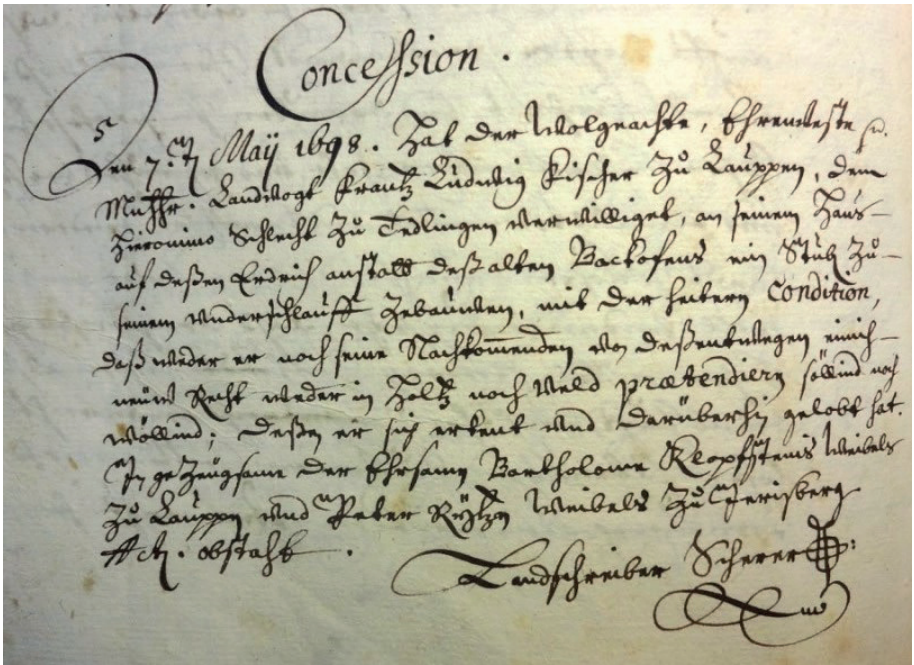 Concession.
Den 7.ten Maÿ 1698. Hat der Wolgeachte, Ehrenveste
Mnhhr. Landvogt Frantz Ludwig Fischer zu Lauppen, dem
Hieronimo Schlecht zu Tedlingen verwilliget, an seinem Haus
auf deßen Erdrich anstatt deß alten Backofens ein Stub zu
seinem underschlauff zebauwen, mit der heitern Condition,
daß weder er noch seine Nachkommenden von deßentwegen einich
neüw Recht weder in Holtz noch Veld prætendieren söllind noch
wöllind; deßen er sich erkent und darüberhin gelobt hat.
In gezeügsame der Ehrsamen Bartholome Klopfsteins Weibels
zu Lauppen und Peter Weibels zu Jerisberg
Act. obstaht.
Landschreiber Scherer